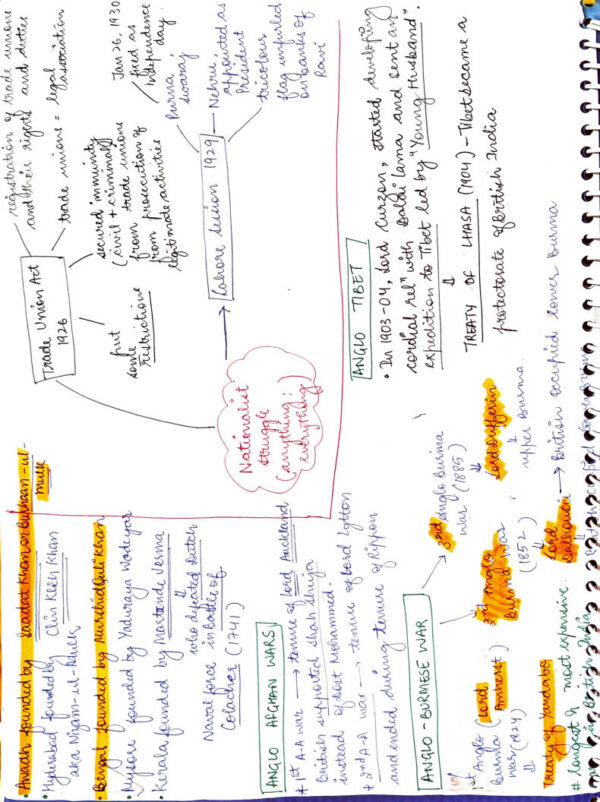 • Awadh founded by Saadat Khan or Burhan-ul-
Mulk
• Hyderabad founded by Chin Kilich Khan
aka Nizam-ul-Mulk
• Bengal founded by Murshid Quli Khan
• Mysore founded by Yaduraya Wodeyar
• Kerala founded by Martanda Verma
who defeated Dutch
Naval force in battle of
Colachel (1741)
ANGLO AFGHAN WARS
* 1st A-A war → tenure of Lord Auckland
British supported Shah Shuja
instead of Dost Mohammed.
* 2nd A-A war → tenure of Lord Lytton
and ended during tenure of Rippon
ANGLO-BURMESE WAR
1st Anglo (Lord
Burma Amherst)
War (1824)
Treaty of Yandabo
# longest & most expensive
in British India
2nd Anglo
Burma War
(1852)
Lord
Dalhousie → British occupied lower Burma
3rd Anglo Burma
War (1885)
Lord Dufferin
upper Burma.
Trade Union Act
1926
registration of trade unions
and their rights and duties
trade unions = legal
association
secured immunity
(civil + criminal)
from trade unions
from prosecution of
legitimate activities
put
some
restrictions
Nationalist
struggle
(anything;
everything)
Lahore Session 1929
Purna
swaraj
Jan 26, 1930
fixed as
independence
day.
Nehru
appointed as
President
tricolour
flag unfurled
on banks of
Ravi
ANGLO TIBET
• In 1903-04, Lord Curzon, started developing
cordial relⁿ with Dalai Lama and sent an
expedition to Tibet led by "Young Husband".
TREATY OF LHASA (1904) - Tibet became a
protectorate of British India